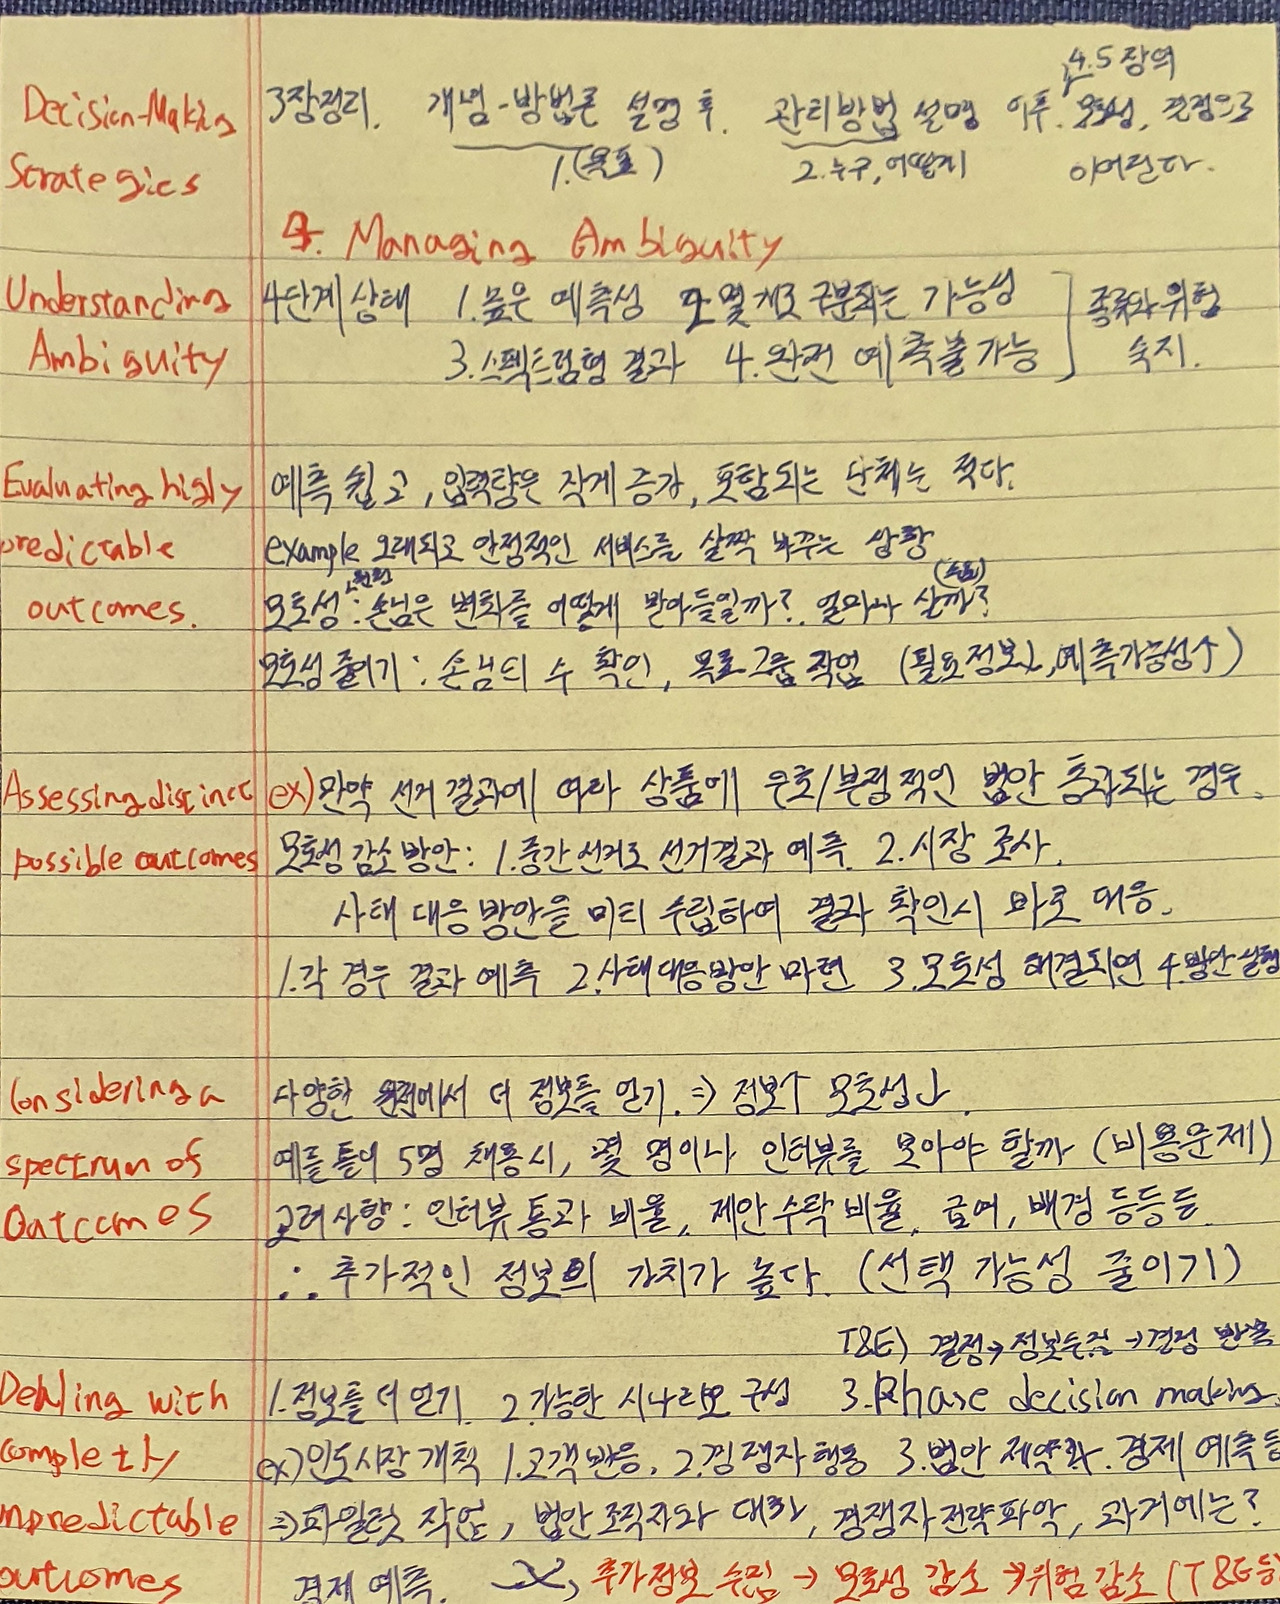 4.5 장역
Decision-Making 3장정리. 개념-방법론 설명 후. 관리방법 설명 이후. 모호성, 관점으로
Strategies 1.(목표) 2.누구,어떻게 이어진다.
4. Managing Ambiguity
Understanding 4단계 상태 1.높은 예측성 2.몇개로 구분되는 가능성 종류와 위험
Ambiguity 3.스펙트럼형 결과 4.완전 예측불가능 숙지.
Evaluating higly 예측 쉽고, 입력량은 작게 증가, 포함되는 단체는 적다.
predictable example 오래되고 안정적인 서비스를 살짝 바꾸는 상황
outcomes. 모호성: 손님은 변화를 어떻게 받아들일까? 얼마나 살까?
모호성 줄이기: 손님의 수 확인, 목표그룹 작업 (필요정보↓,예측가능성↑)
Assessing distinct ex)만약 선거 결과에 따라 상품에 우호/부정적인 법안 통과되는 경우.
possible outcomes 모호성 감소 방안: 1.중간선거로 선거결과 예측. 2.시장 조사.
사태 대응 방안을 미리 수립하여 결과 확인시 바로 대응.
1.각 경우 결과 예측 2.사태대응방안 마련 3.모호성 해결되면 4.방안 실행
Considering a 다양한 에서 더 정보를 얻기.⇒ 정보↑ 모호성↓.
spectrum of 예를 들어 5명 채용시, 몇 명이나 인터뷰를 모아야 할까 (비용문제)
Outcomes 고려사항: 인터뷰 통과 비율, 제안 수락 비율, 급여, 배경 등등등.
∴ 추가적인 정보의 가치가 높다. (선택 가능성 줄이기)
T&E) 결정→정보수집→결정 반복
Dealing with 1.정보를 더 얻기. 2.가능한 시나리오 구성 3.Phase decision making.
completly ex)인도시장 개척 1.고객반응. 2.경쟁자 행동 3.법안 제약과. 경제 예측등
npredictable ⇒파일럿 작업, 법안 조직자와 대화, 경쟁자 전략파악, 과거에는?
outcomes 경제 예측. 추가정보 수집 → 모호성 감소 →위험감소 (T&E등